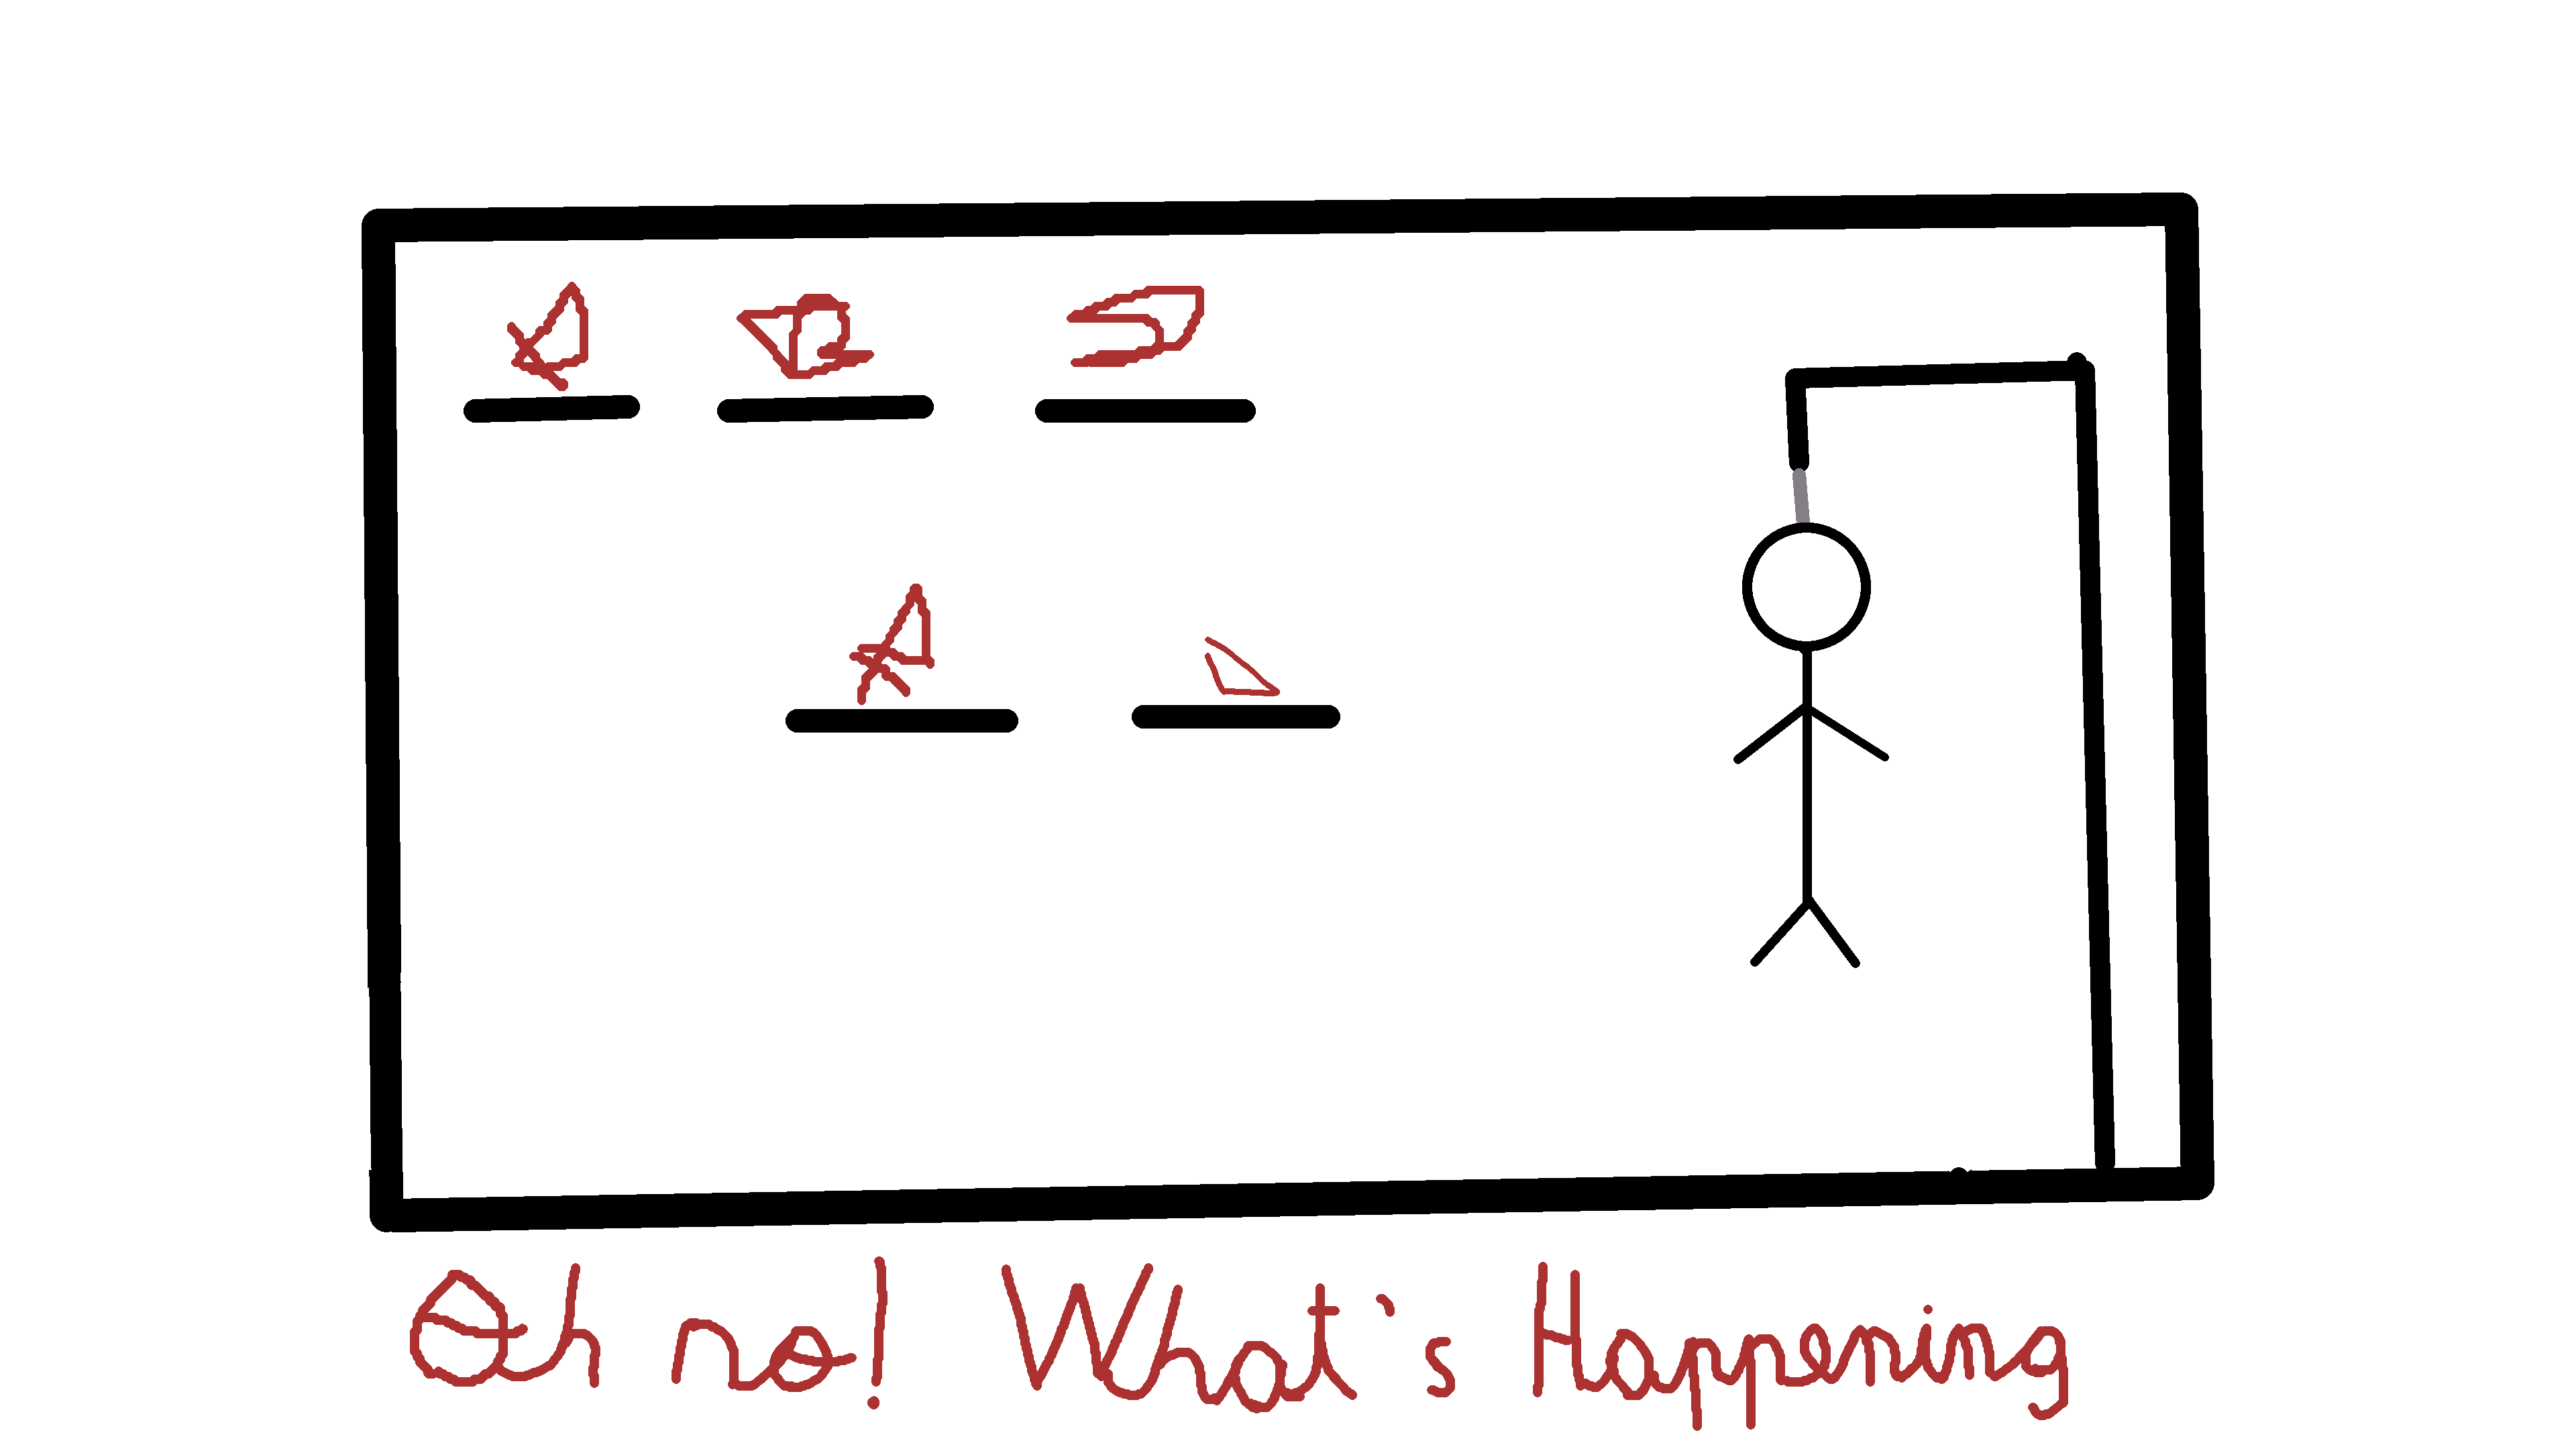 Oh no! What's Happening